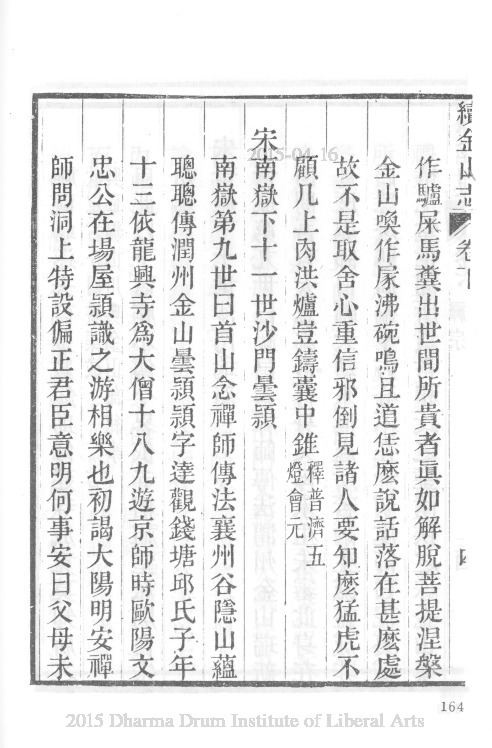 續金山志 卷下 四
作驢屎馬糞出世間所貴者眞如解脫菩提涅槃
金山喚作尿沸碗鳴且道恁麽說話落在甚麽處
故不是取舍心重信邪倒見諸人要知麽猛虎不
顧几上肉洪爐豈鑄囊中錐釋普濟五燈會元
宋南嶽下十一世沙門曇頴
南嶽第九世曰首山念禪師傳法襄州谷隱山蘊
聰聰傳潤州金山曇頴頴字達觀錢塘邱氏子年
十三依龍興寺爲大僧十八九遊京師時歐陽文
忠公在場屋頴識之游相樂也初謁大陽明安禪
師問洞上特設偏正君臣意明何事安曰父母未
2015-04-16
164
2015 Dharma Drum Institute of Liberal Arts